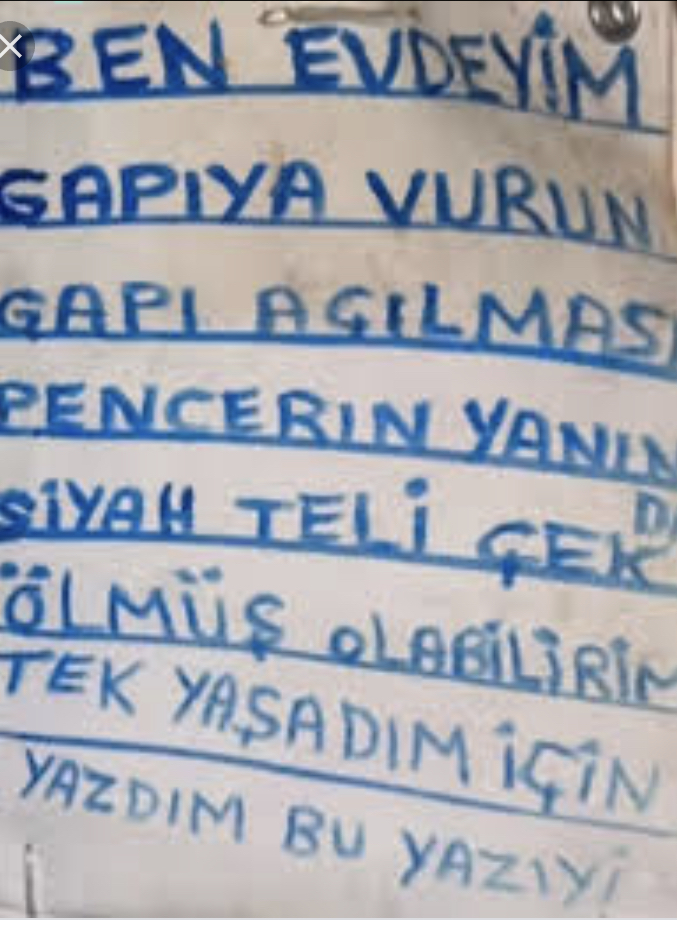 BEN EVDEYİM
GAPIYA VURUN
GAPI AÇILMAS
PENCERIN YANIN
DA
SİYAH TELİ ÇEK
ÖLMÜŞ OLABİLİRİM
TEK YAŞADIM İÇİN
YAZDIM BU YAZIYİ